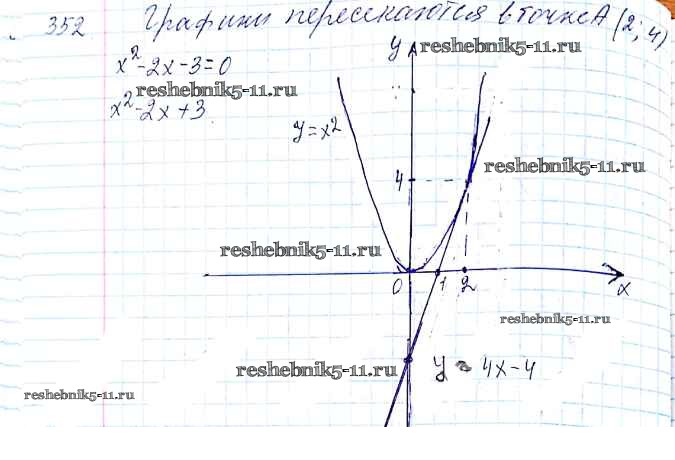 352 Графики пересекаются в точке А (2; 4)
x²-2x-3=0
reshebnik5-11.ru
x²-2x+3
y
reshebnik5-11.ru
y=x²
4
reshebnik5-11.ru
reshebnik5-11.ru
0 1 2 x
reshebnik5-11.ru
reshebnik5-11.ru
y = 4x-4
reshebnik5-11.ru